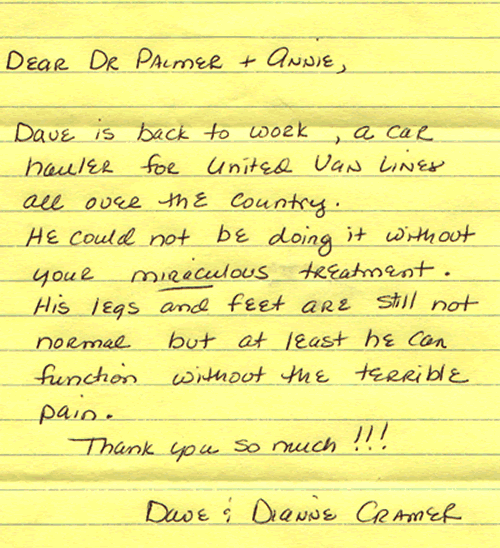 Dear Dr Palmer + Annie,
Dave is back to work, a car
hauler for United Van Lines
all over the country.
He could not be doing it without
your miraculous treatment.
His legs and feet are still not
normal but at least he can
function without the terrible
pain.
Thank you so much!!!
Dave & Dianne Cramer